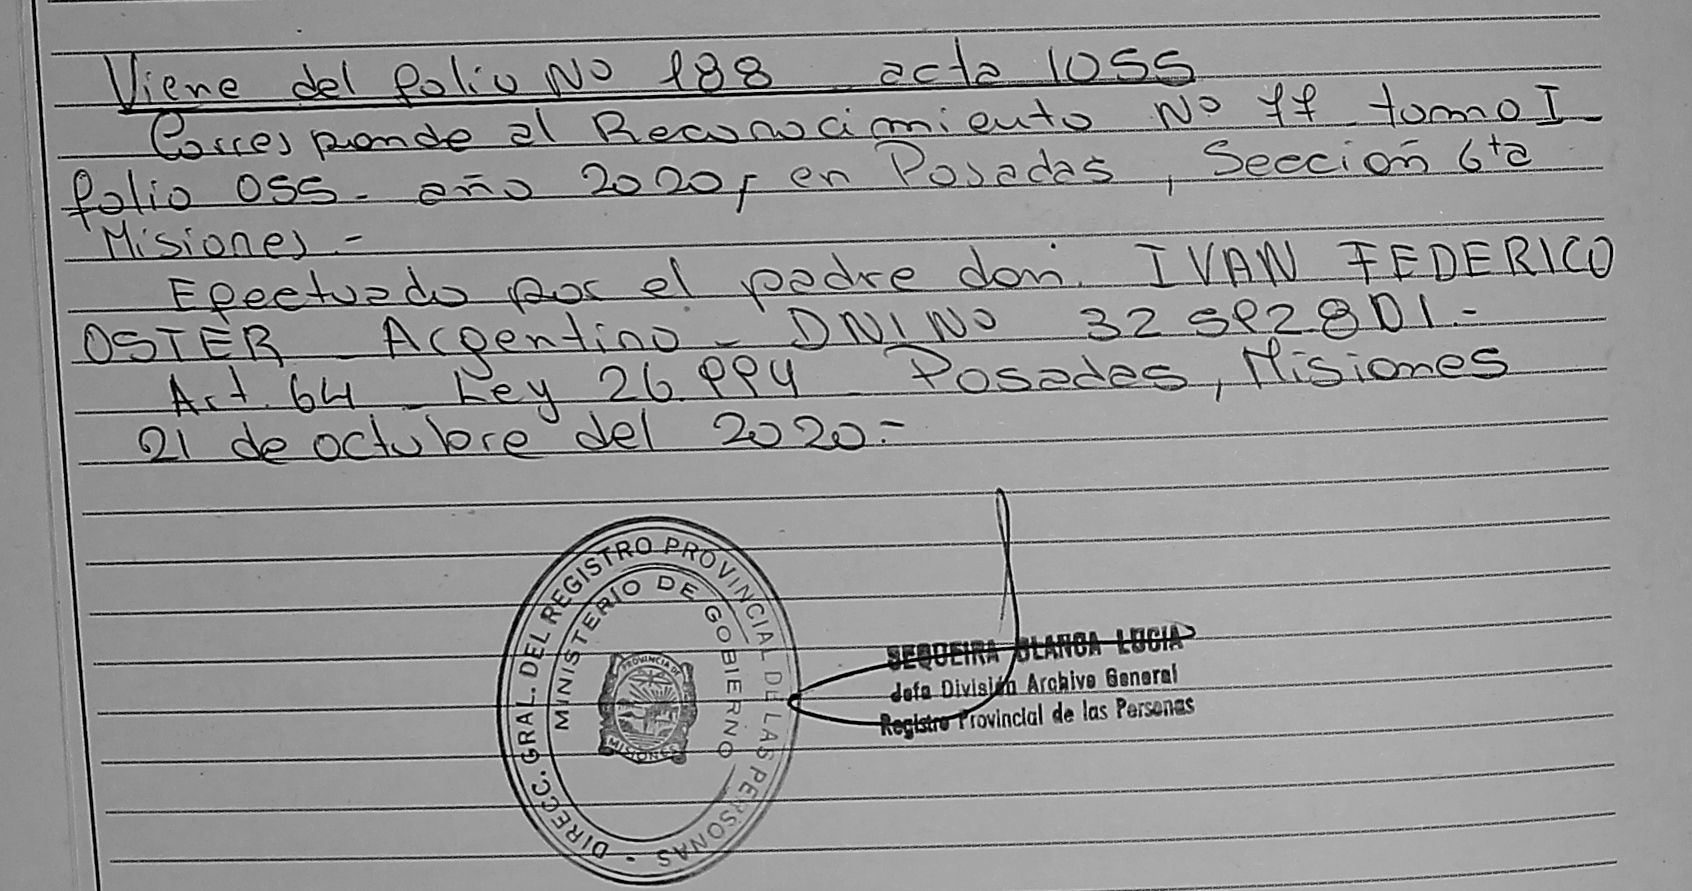 Viene del folio Nº 188 acta 1055
Corresponde al Reconocimiento Nº 77 tomo I
folio 055- año 2020, en Posadas, Sección 6ta
Misiones.-
Efectuado por el padre don. IVAN FEDERICO
OSTER - Argentino - DNI Nº 32592801.-
Art. 64 - Ley 26.994 - Posadas, Misiones
21 de octubre del 2020.-
DIRECC. GRAL. DEL REGISTRO PROVINCIAL DE LAS PERSONAS -
MINISTERIO DE GOBIERNO
PROVINCIA DE
MISIONES
SEQUEIRA BLANCA LUCIA
Jefa División Archivo General
Registro Provincial de las Personas